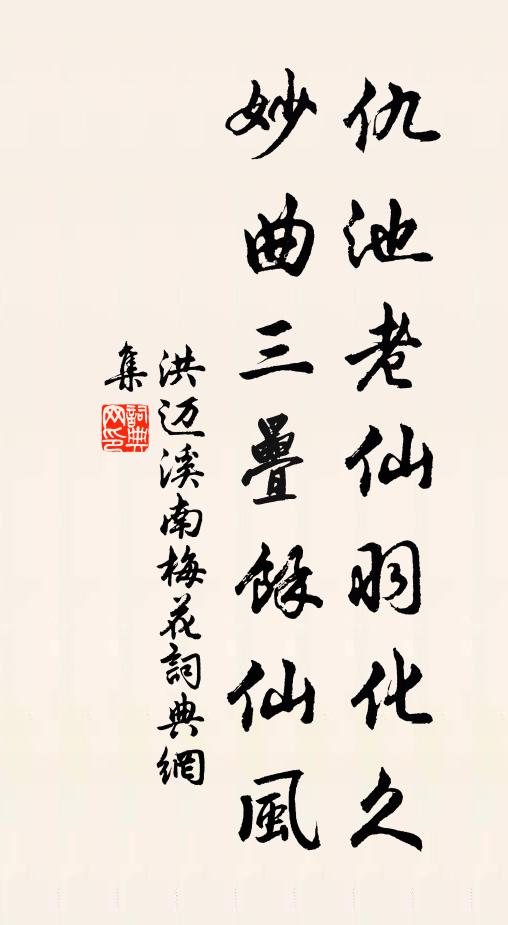 仇池老仙羽化久
妙曲三疊餘仙風
洪迈溪南梅花詞典網
集
詞典网印